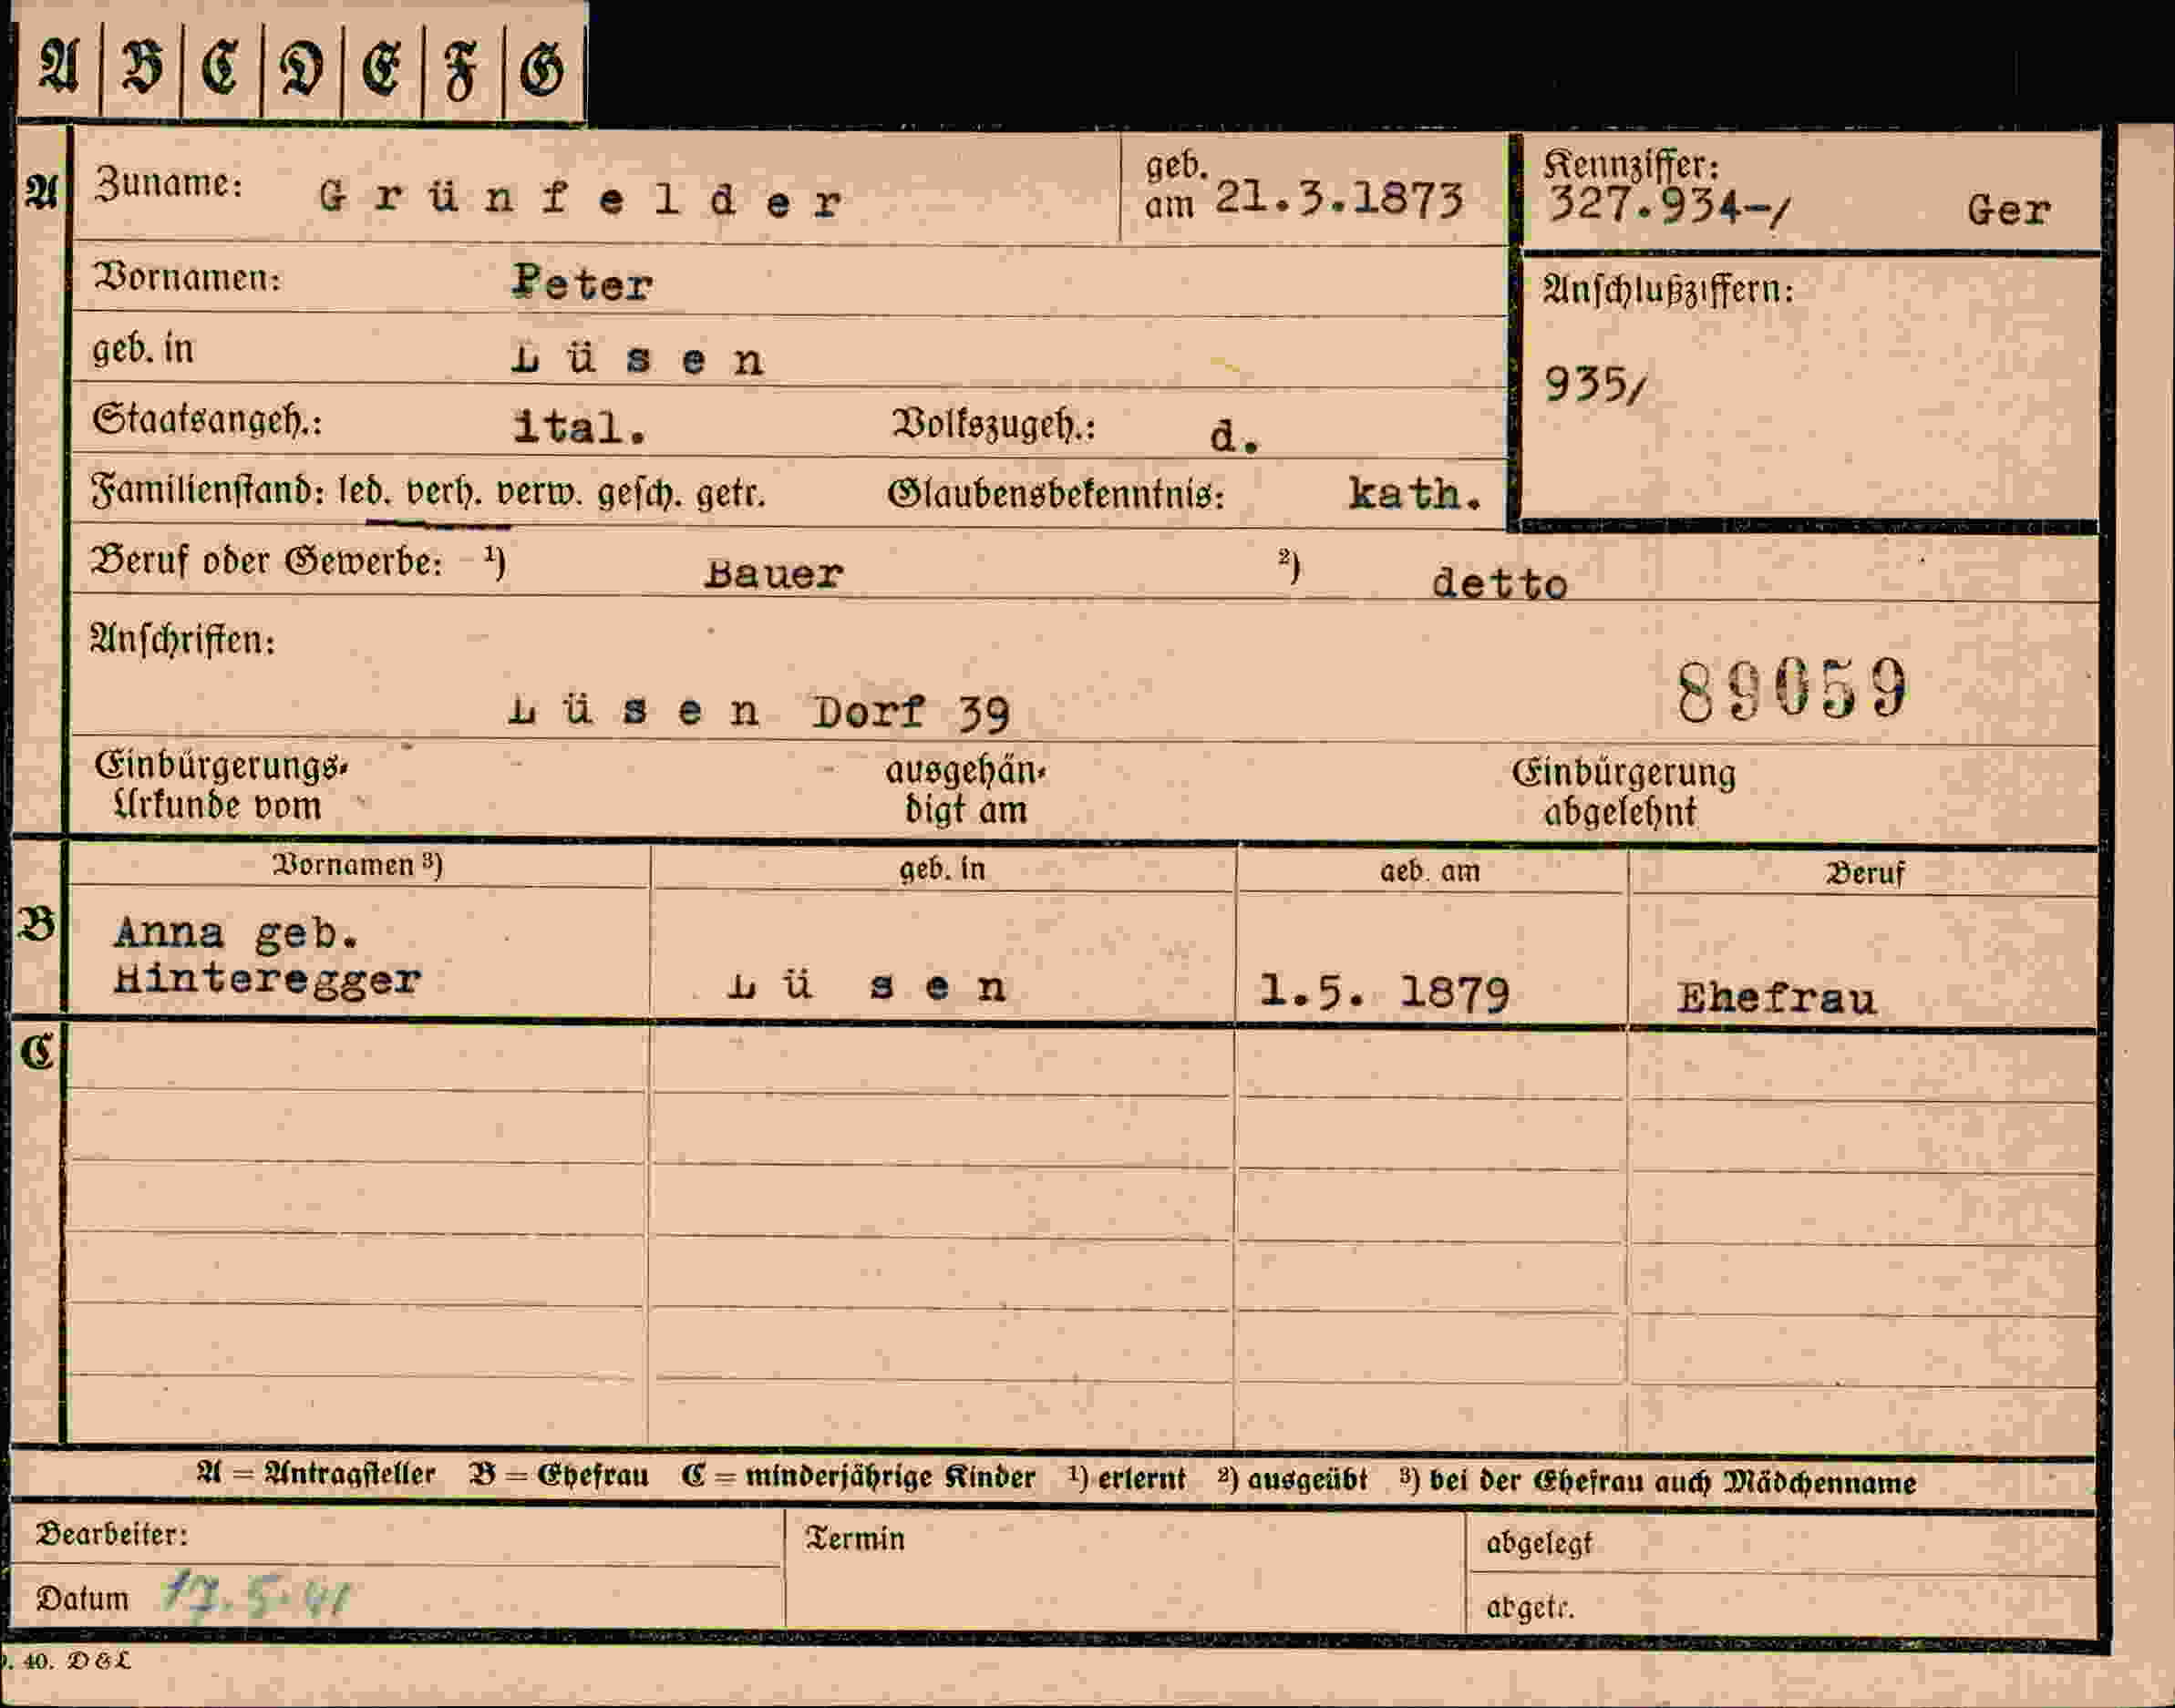 A B C D E F G
A Zuname: Grünfelder geb. am 21.3.1873 Kennziffer: 327.934-/ Ger
Vornamen: Peter Anschlußziffern:
geb. in Lüsen 935/
Staatsangeh.: ital. Volkszugeh.: d.
Familienstand: led. verh. verw. gesch. getr. Glaubensbekenntnis: kath.
Beruf oder Gewerbe: 1) Bauer 2) detto
Anschriften:
89059
Lüsen Dorf 39
Einbürgerungs- ausgehän- Einbürgerung
Urkunde vom digt am abgelehnt
Vornamen 3) geb. in geb. am Beruf
B Anna geb.
Hinteregger Lüsen 1.5. 1879 Ehefrau
C
A = Antragsteller B = Ehefrau C = minderjährige Kinder 1) erlernt 2) ausgeübt 3) bei der Ehefrau auch Mädchenname
Bearbeiter: Termin abgelegt
Datum 17.5.41 abgetr.
. 40. D&L